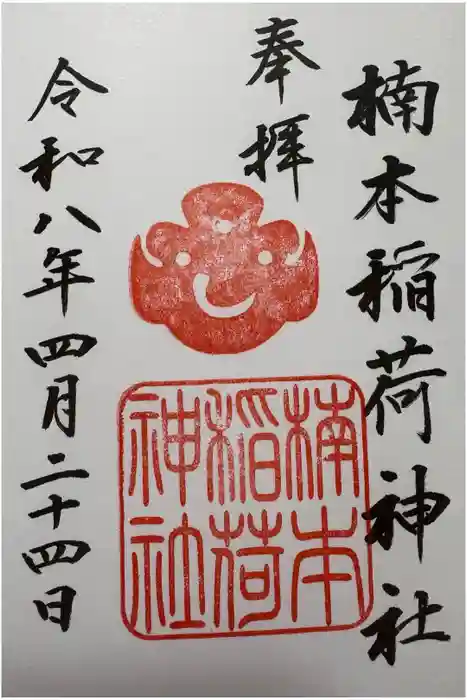 楠本稲荷神社
奉拝
楠本
稲荷
神社
令和八年四月二十四日